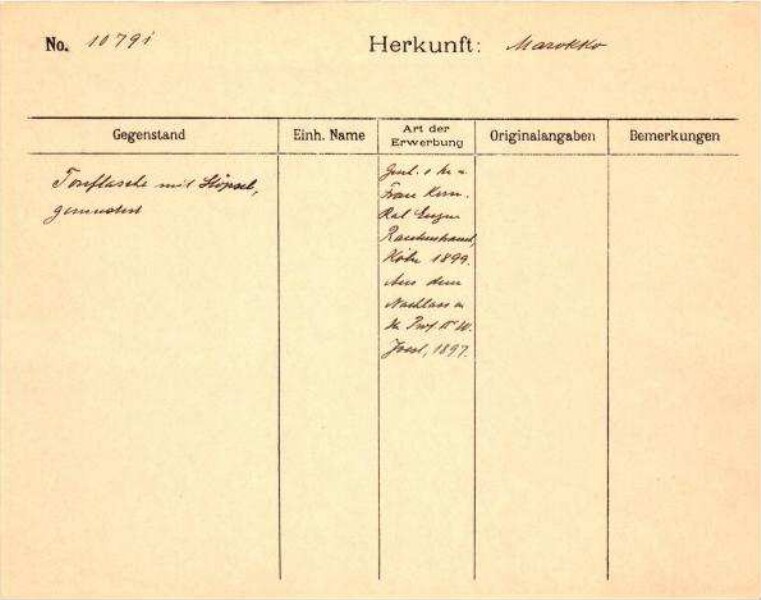 No. 10791
Herkunft: Marokko
Gegenstand
Einh. Name
Art der
Erwerbung
Originalangaben
Bemerkungen
Tonflasche mit Stöpsel,
gemustert
Frau Kom.
Rat Eugen
Rautenstrauch,
Köln 1899.
Aus dem
Nachlass
Joest, 1897.